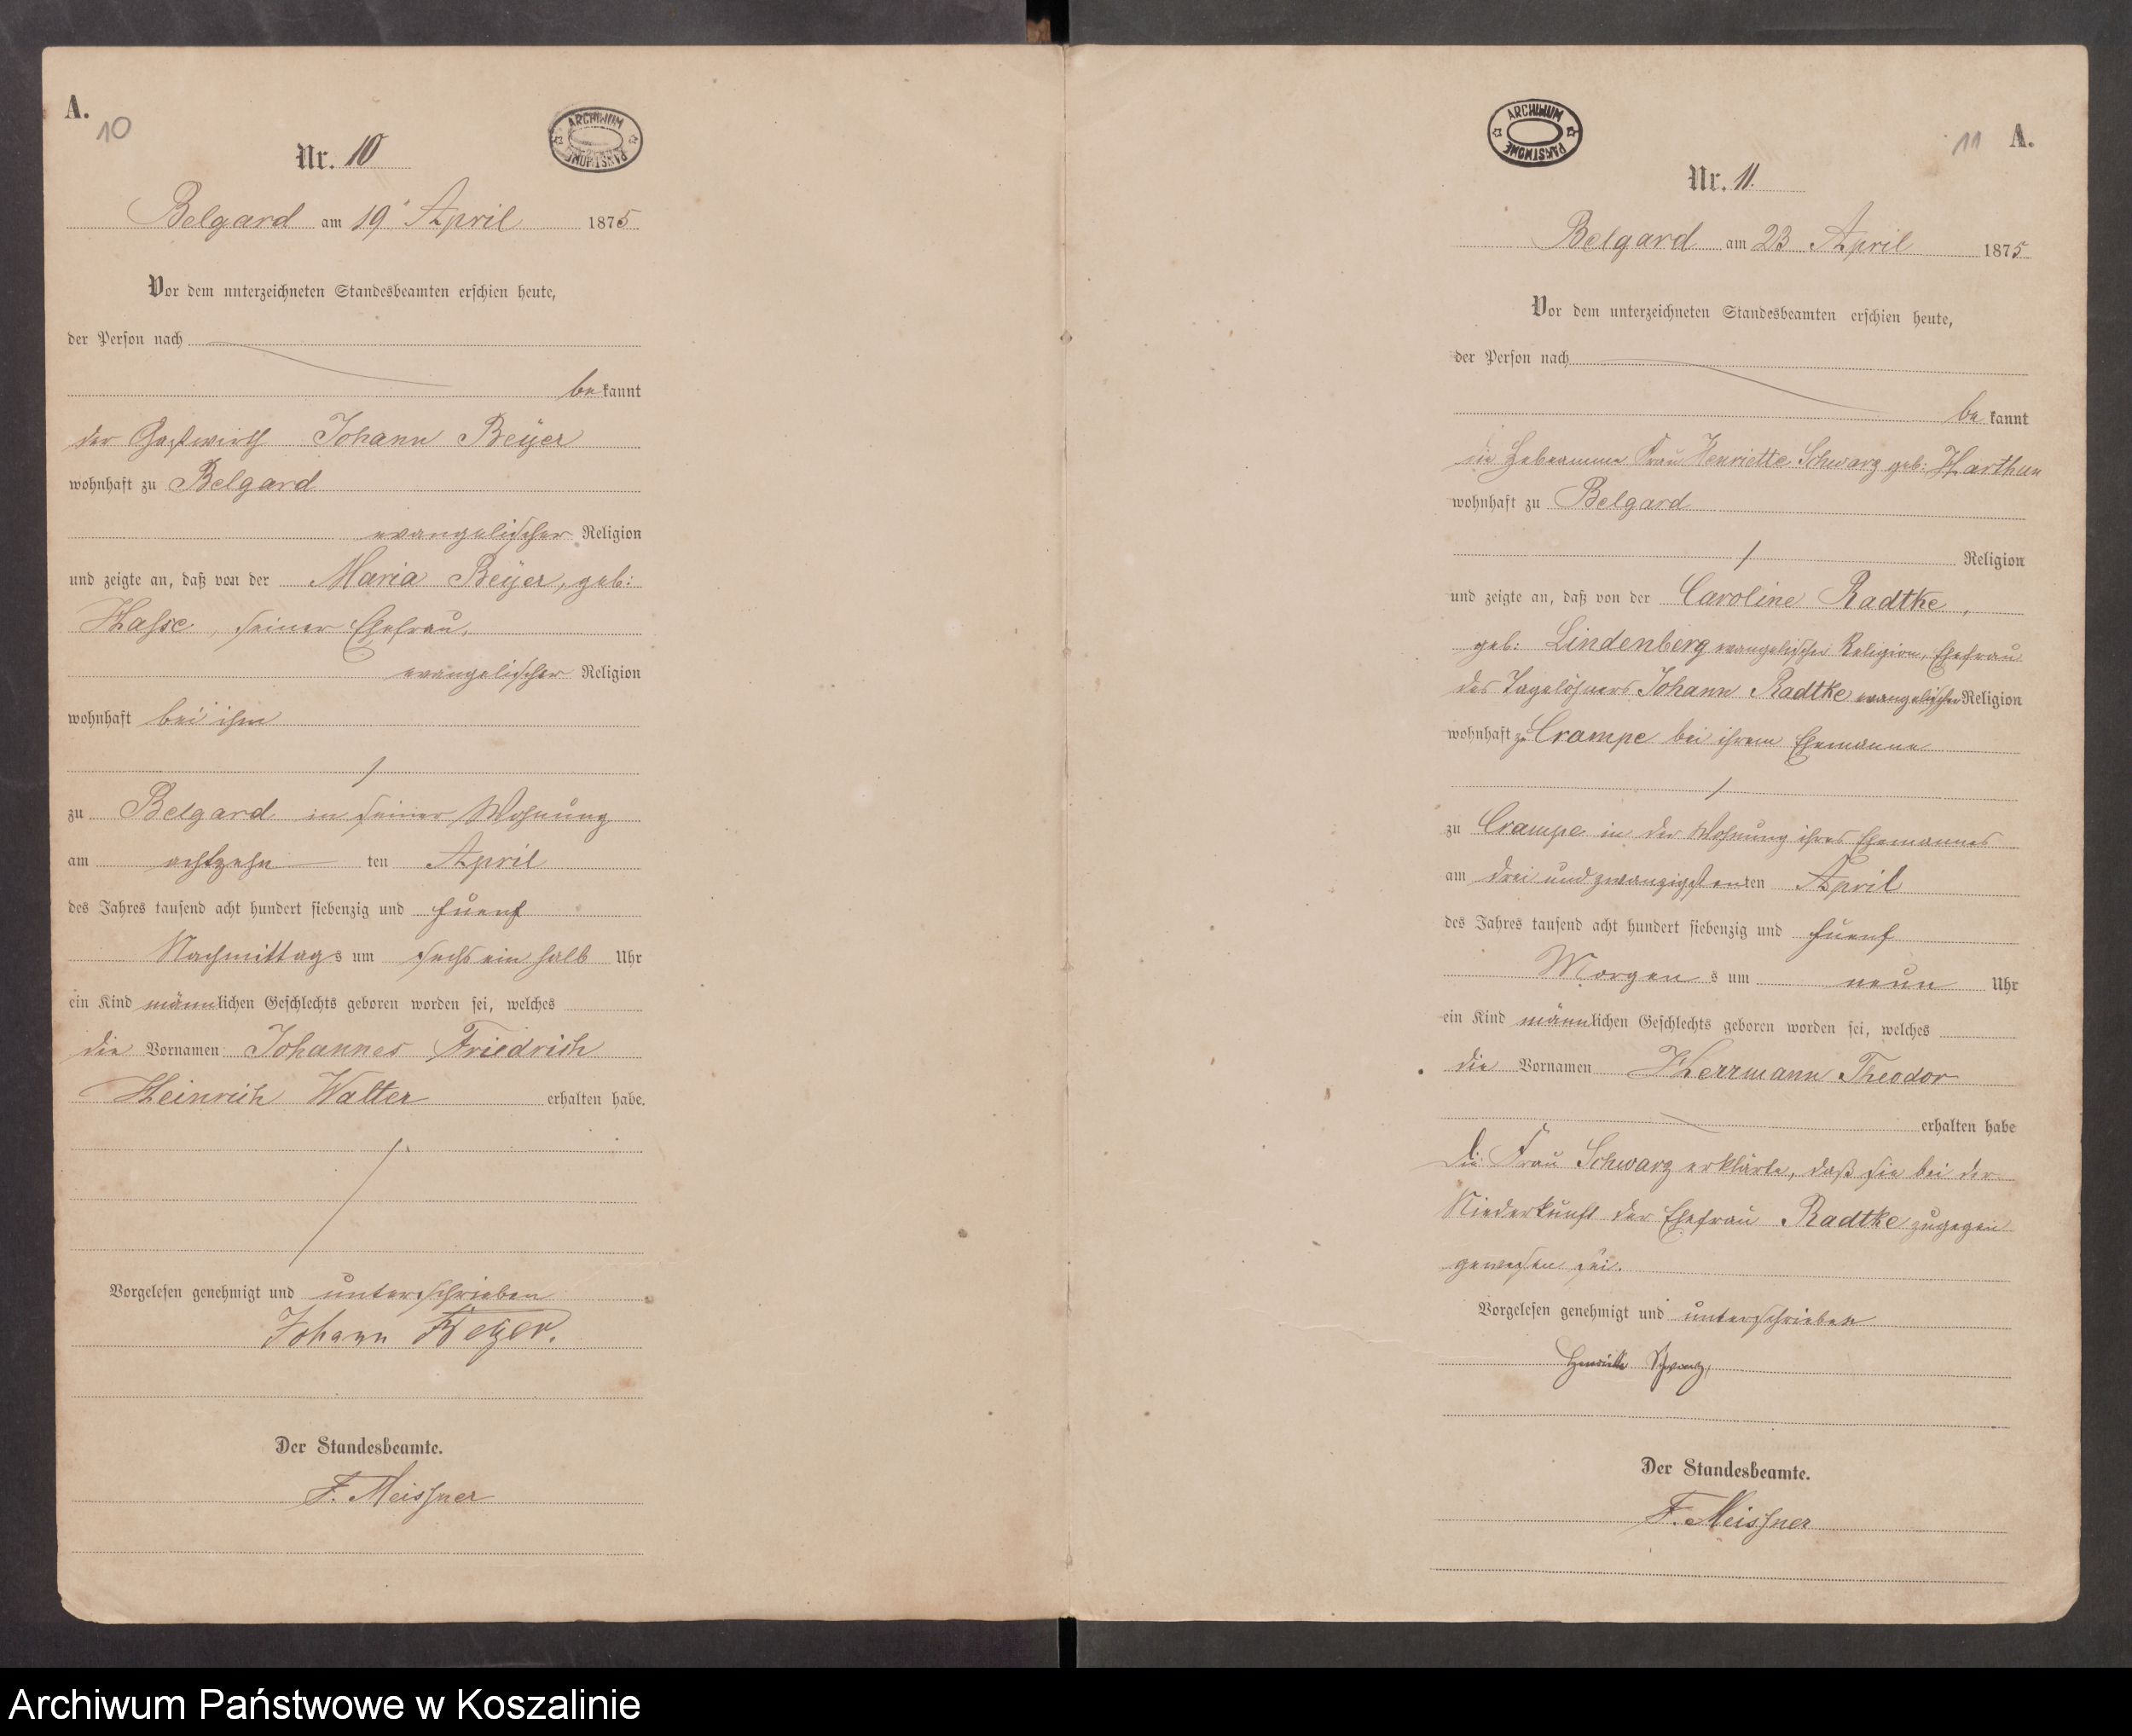 A.
10
Nr. 10
ARCHIWUM PAŃSTWOWE
Belgard am 19. April 1875
Vor dem unterzeichneten Standesbeamten erschien heute,
der Person nach
bekannt
der Gastwirth Johann Beyer
wohnhaft zu Belgard
evangelischer Religion
und zeigte an, daß von der Maria Beyer, geb:
Hasse, seiner Ehefrau,
evangelischer Religion
wohnhaft bei ihm
zu Belgard in seiner Wohnung
am achtzehnten April
des Jahres tausend acht hundert siebenzig und fuenf
Nachmittags um sechs ein halb Uhr
ein Kind männlichen Geschlechts geboren worden sei, welches
die Vornamen Johannes Friedrich
Heinrich Walter erhalten habe.
Vorgelesen genehmigt und unterschrieben
Johann Beyer.
Der Standesbeamte.
F. Meissner
11 A.
ARCHIWUM PAŃSTWOWE
Nr. 11.
Belgard am 23 April 1875
Vor dem unterzeichneten Standesbeamten erschien heute,
der Person nach
bekannt
die Hebeamme Frau Henriette Schwarz geb: Harthun
wohnhaft zu Belgard
Religion
und zeigte an, daß von der Caroline Radtke,
geb: Lindenberg evangelischer Religion, Ehefrau
des Tagelöhners Johann Radtke evangelischer Religion
wohnhaft zu Crampe bei ihrem Ehemanne
zu Crampe in der Wohnung ihres Ehemannes
am drei und zwanzigsten April
des Jahres tausend acht hundert siebenzig und fuenf
Morgens um neun Uhr
ein Kind männlichen Geschlechts geboren worden sei, welches
die Vornamen Herrmann Theodor
erhalten habe
Die Frau Schwarz erklärte, daß sie bei der
Niederkunft der Ehefrau Radtke zugegen
gewesen sei.
Vorgelesen genehmigt und unterschrieben
Henriette Schwarz,
Der Standesbeamte.
F. Meissner
Archiwum Państwowe w Koszalinie